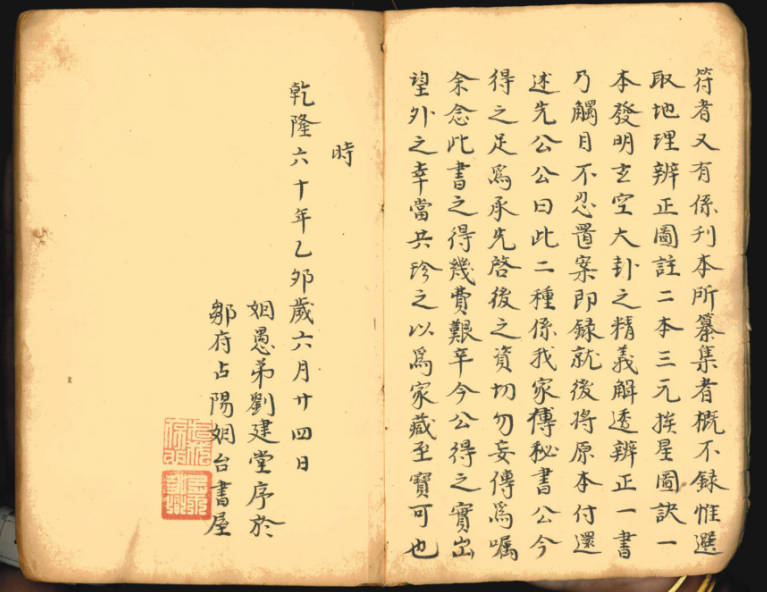 符者又有係刋本所纂集者概不録惟選
取地理辨正圖註二本三元挨星圖訣一
本發明玄空大卦之精義解透辨正一書
乃觸目不忍置案即録就後將原本付還
述先公公曰此二種係我家傳秘書公今
得之足爲承先啓後之資切勿妄傳爲嘱
余念此書之得幾費艱辛今公得之實出
望外之幸當共珍之以爲家藏至寶可也
時
乾隆六十年乙夘歲六月廿四日
姻愚弟劉建堂序於
鄒府占陽姻台書屋